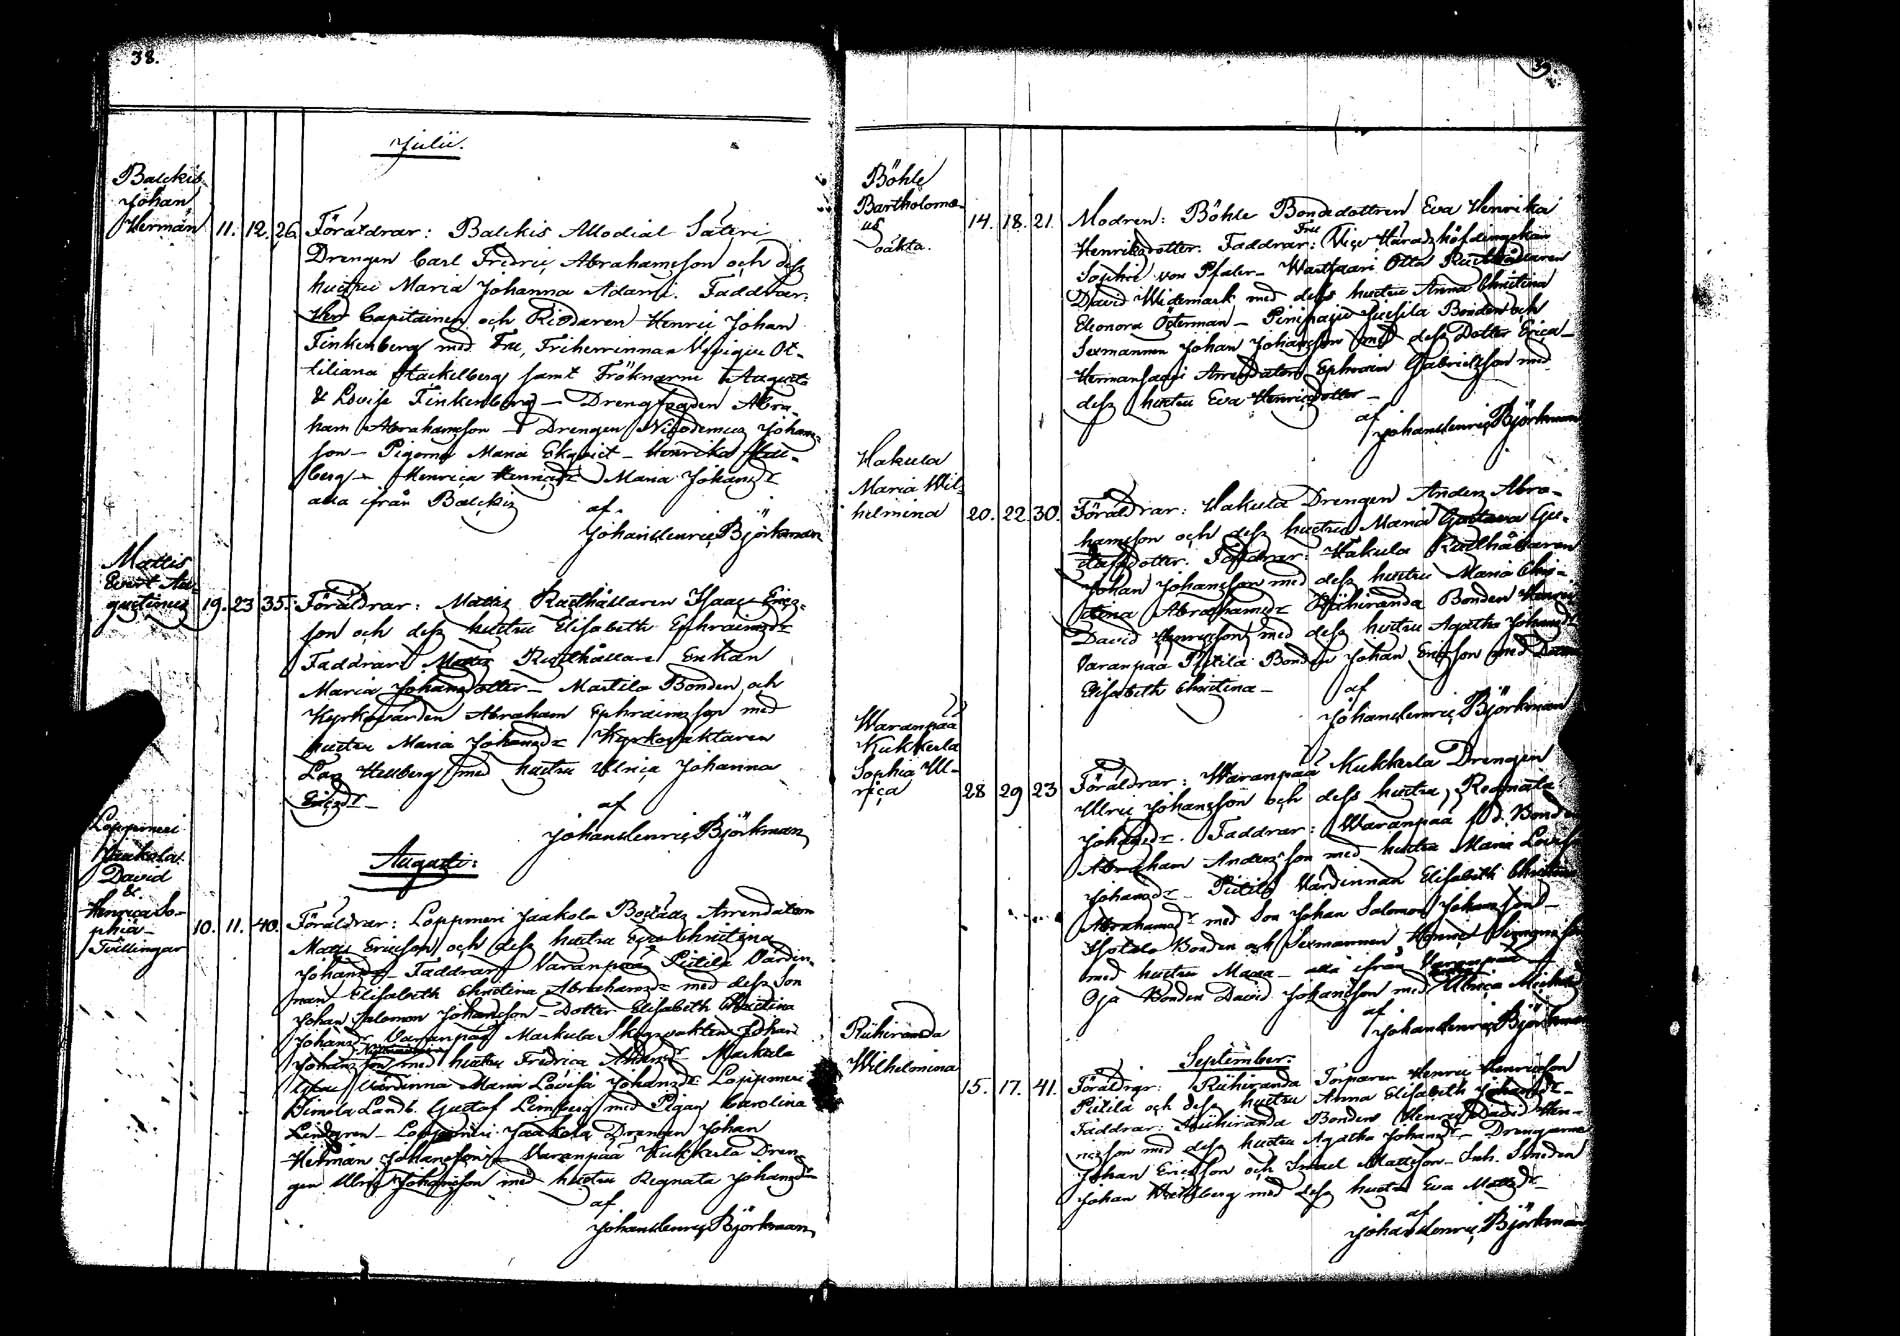 38.
Julii.
Balckis
Johan
Herman 11. 12. 26. Föräldrar: Balckis Allodial Säteri
Drengen Carl Fredric Abrahamsson och dess
hustru Maria Johanna Adami. Faddrar:
Herr Capitainen och Riddaren Henric Johan
Finkenberg med Fru, Friherrinnan Ot-
tiliana Stackelberg samt Fröknarne Augusta
& Lovisa Finkenberg – Drengfogden Abra-
ham Abrahamsson – Drengen Nicodemus Johans-
son – Pigorne Maria Ekqvist – Henrika
berg – Henrica Henricsdr Maria Johansdr
alla ifrån Balckis
af
Johan Henric Björkman
Mattis
Evert Au-
gustinus 19. 23 35. Föräldrar: Mattis Rusthållaren Isaac Erics-
son och dess hustru Elisabeth Ephraimsdr
Faddrar: Mattis Rusthållare Enkan
Maria Johansdotter – Martila Bonden och
Kyrkovärden Abraham Ephraimsson med
hustru Maria Johansdr Kyrkovaktaren
Lars Hellberg med hustru Ulrica Johanna
Ericsdr –
af
Johan Henric Björkman
Augusti:
Loppmeri
Jaakola
David
&
Henrica So-
phia –
Tvillingar 10. 11. 40. Föräldrar: Loppmeri Jaakola Arrendatorn
Matts Ericsson och dess hustru Eva Christina
Johansdr – Faddrar: Varanpää Pietilä Värdin-
nan Elisabeth Christina Abrahamsdr med dess Son
Johan Salomon Johansson – Dotter Elisabeth Christina
Johansdr Varanpää Markula Skogvaktaren Johan
Johansson med hustru Fredrica Andersdr Markula
Värdinna Maria Lovisa Johansdr Loppmeri
Simola Landb. Gustaf Limberg med Pigan Carolina
Lindgren – Loppmeri Jaakola Drengen Johan
Herman Johansson – Varanpää Kukkerla Dren-
gen Ulric Johansson med hustru Regnata Johansdr
af
Johan Henric Björkman
39.
Böhle
Bartholomæ-
us
oäkta. 14. 18. 21. Modren: Böhle Bondedottren Eva Henrika
Henriksdotter. Faddrar: Fru Vice Häradshöfdingskan
Sophie von Pfaler – Warttaari Otta Rusthållaren
David Widemark med dess hustru Anna Christina
Eleonora Österman – Bonden och
Sexmannen Johan Johansson med dess Dotter Erica –
Hermansaari Arrendatorn Ephraim Gabrielsson med
dess hustru Eva Henricsdotter –
af
Johan Henric Björkman
Hakula
Maria Wil-
helmina 20. 22. 30. Föräldrar: Hakula Drengen Anders Abra-
hamsson och dess hustru Maria Gustava Gu-
stafsdotter. Faddrar: Hakula Rusthållaren
Johan Johansson med dess hustru Maria Chri-
stina Abrahamsdr Riihiranda Bonden Henric
David Henricsson med dess hustru Agatha Johansdr
Varanpää Pietilä Bonden Johan Ericsson med Dotter
Elisabeth Christina –
af
Johan Henric Björkman
Waranpää
Kukkerla
Sophia Ul-
rica 28 29 23 Föräldrar: Waranpää Kukkerla Drengen
Ulric Johansson och dess hustru Regnata
Johansdr. Faddrar: Waranpää Bonden
Abraham Andersson med hustru Maria Lovisa
Johansdr – Pietilä Värdinnan Elisabeth Christina
Abrahamsdr med Son Johan Salomon Johansson –
Isotalo Bonden och Sexmannen
med hustru Maria – alla ifrån Varanpää –
Oja Bonden David Johansson med Ulrica
af
Johan Henric Björkman
September.
Riihiranda
Wilhelmina 15. 17. 41. Föräldrar: Riihiranda Torparen Henric Henricsson
Pietilä och dess hustru Anna Elisabeth Johansdr –
Faddrar: Riihiranda Bonden Henric David Hen-
ricsson med dess hustru Agatha Johansdr – Drengarne
Johan Ericsson och Israel Mattsson – Inh. Smeden
Johan med dess hustru Eva Mattsdr –
af
Johan Henric Björkman